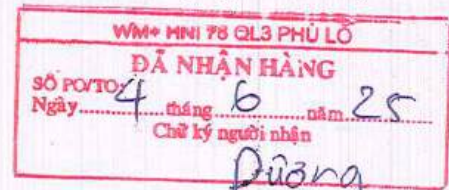 WM+ HNI 78 QL3 PHÙ LỖ
ĐÃ NHẬN HÀNG
SỐ PO/TO:
Ngày 4 tháng 6 năm 25
Chữ ký người nhận
Dương